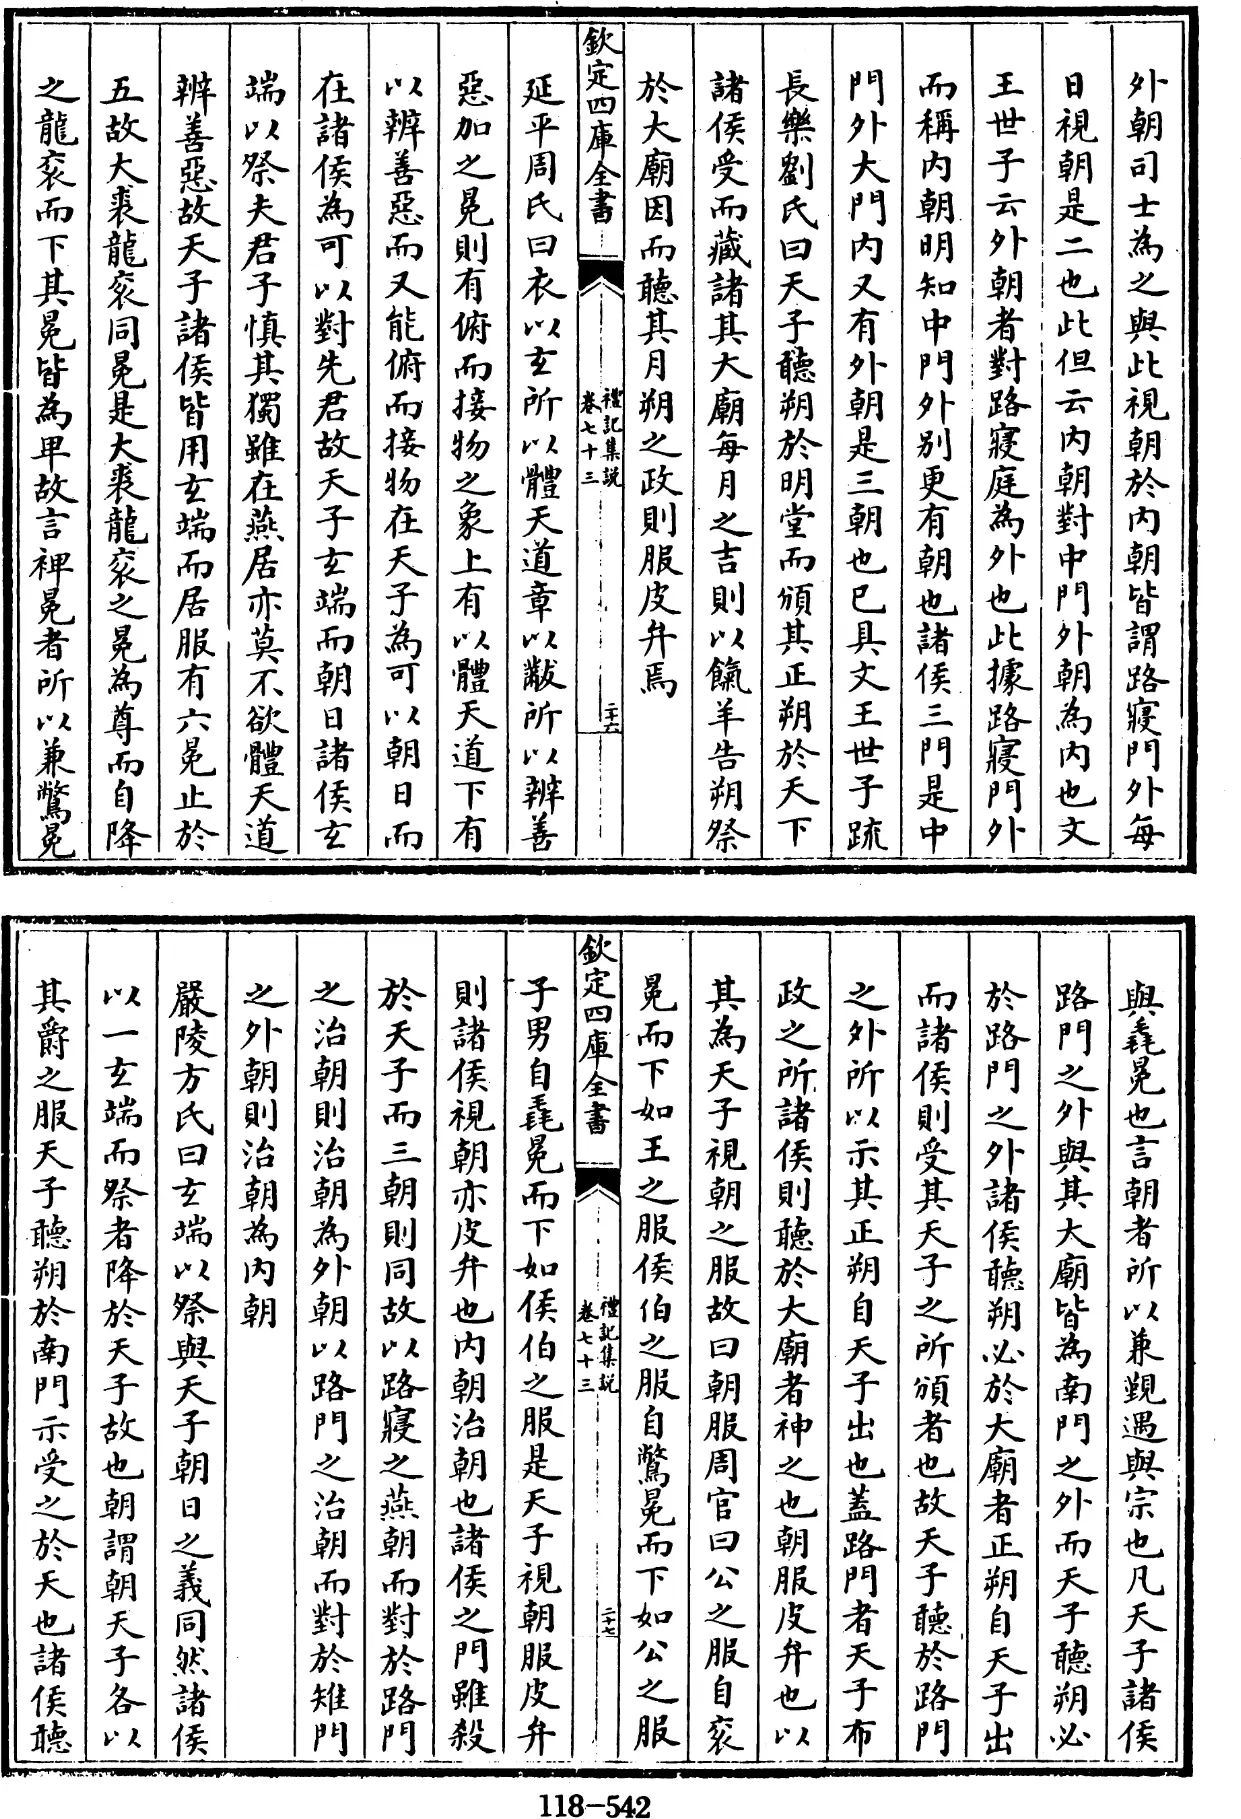 外朝司士為之與此視朝於内朝皆謂路寢門外每
日視朝是二也此但云内朝對中門外朝為内也文
王世子云外朝者對路寢庭為外也此據路寢門外
而稱内朝明知中門外别更有朝也諸侯三門是中
門外大門内又有外朝是三朝也已具文王世子疏
長樂劉氏曰天子聽朔於明堂而頒其正朔於天下
諸侯受而藏諸其大廟每月之吉則以餼羊告朔祭
於大廟因而聽其月朔之政則服皮弁焉
欽定四庫全書
禮記集説
卷七十三
二十六
延平周氏曰衣以玄所以體天道章以黻所以辨善
惡加之冕則有俯而接物之象上有以體天道下有
以辨善惡而又能俯而接物在天子為可以朝日而
在諸侯為可以對先君故天子玄端而朝日諸侯玄
端以祭夫君子慎其獨雖在燕居亦莫不欲體天道
辨善惡故天子諸侯皆用玄端而居服有六冕止於
五故大裘龍衮同冕是大裘龍衮之冕為尊而自降
之龍衮而下其冕皆為卑故言裨冕者所以兼鷩冕
與毳冕也言朝者所以兼覲遇與宗也凡天子諸侯
路門之外與其大廟皆為南門之外而天子聽朔必
於路門之外諸侯聽朔必於大廟者正朔自天子出
而諸侯則受其天子之所頒者也故天子聽於路門
之外所以示其正朔自天子出也蓋路門者天子布
政之所諸侯則聽於大廟者神之也朝服皮弁也以
其為天子視朝之服故曰朝服周官曰公之服自衮
冕而下如王之服侯伯之服自鷩冕而下如公之服
欽定四庫全書
禮記集説
卷七十三
二十七
子男自毳冕而下如侯伯之服是天子視朝服皮弁
則諸侯視朝亦皮弁也内朝治朝也諸侯之門雖殺
於天子而三朝則同故以路寢之燕朝而對於路門
之治朝則治朝為外朝以路門之治朝而對於雉門
之外朝則治朝為内朝
嚴陵方氏曰玄端以祭與天子朝日之義同然諸侯
以一玄端而祭者降於天子故也朝謂朝天子各以
其爵之服天子聽朔於南門示受之於天也諸侯聽
118-542